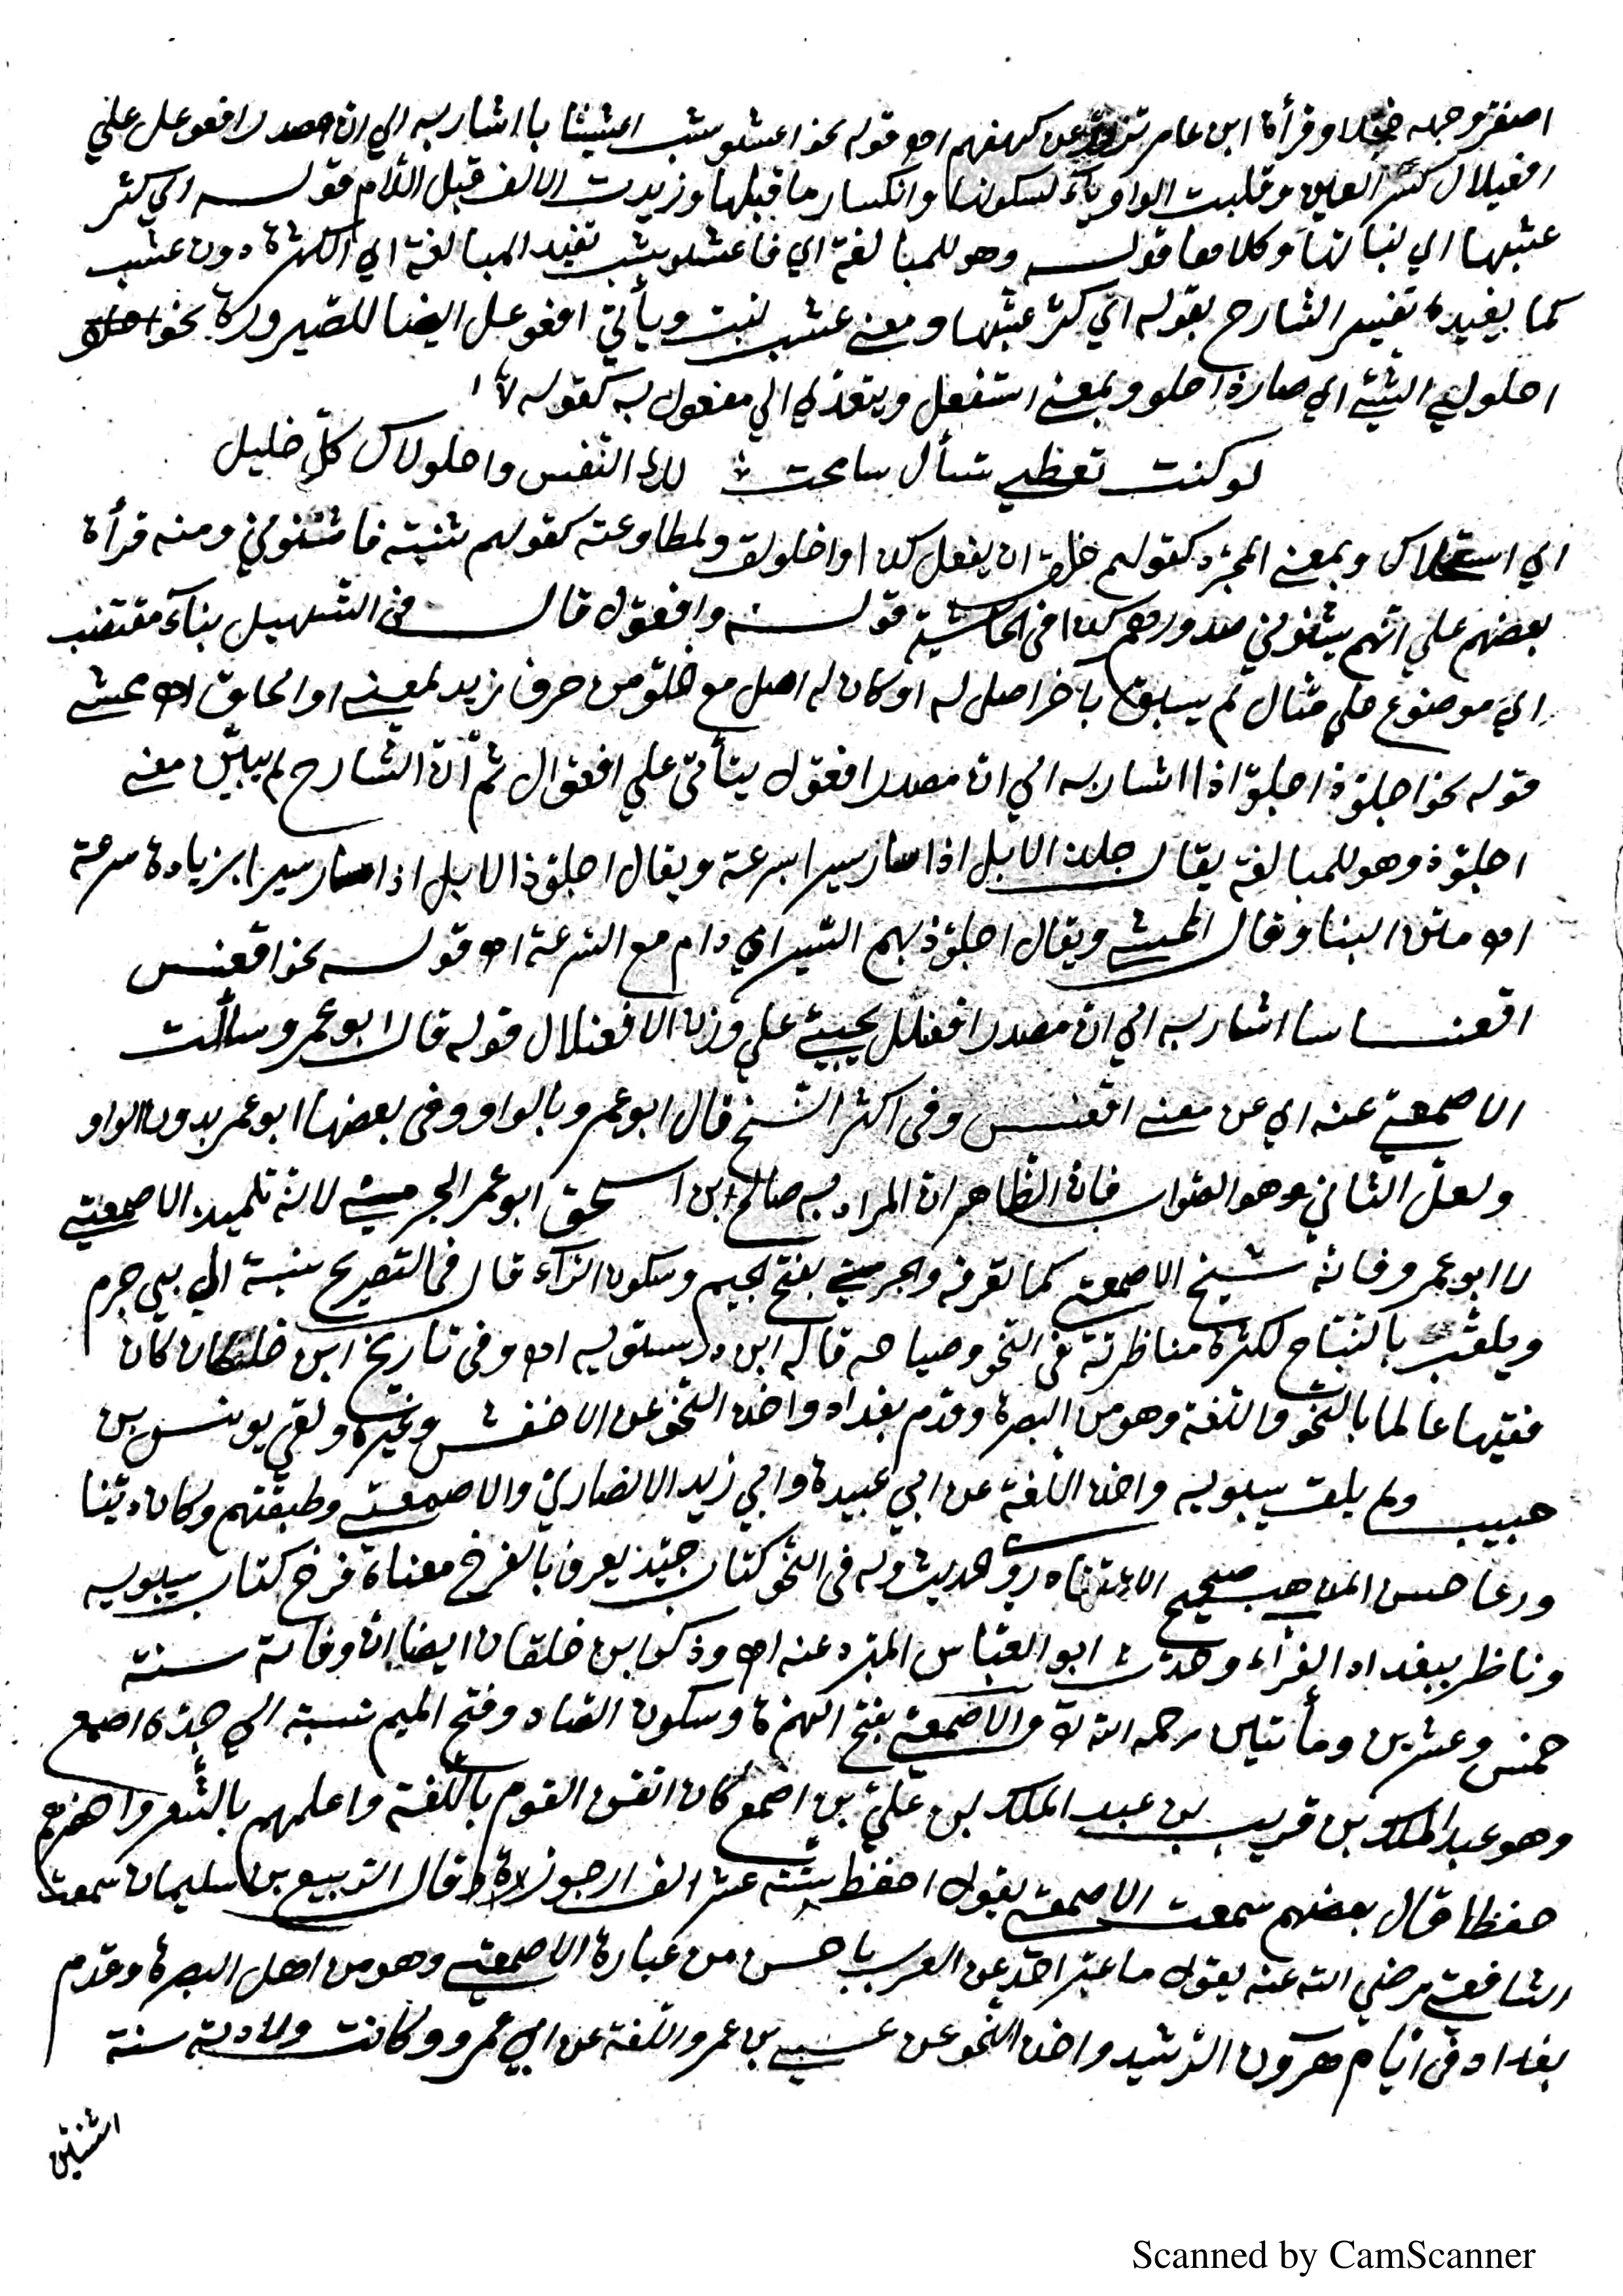 اصفر وجهه خجلا وقرأة ابن عامر تزور عن كهفهم اهـ قوله نحو اعشوشب اعشيشابا اشار به الي ان مصدر افعوعل علي
افعيلال كسر العين وقلبت الواو ياء لسكونها وانكسار ما قبلها وزيدت الالف قبل اللام قوله اي كثر
عشبها اي نباتها وكلامها قوله وهو للمبالغة اي فاعشوشب تفيد المبالغة اي الكثرة دون عشب
كما يفيده تفسير الشارح بقوله اي كثر عشبها ومعني عشب نبت ويأتي افعوعل ايضا للصيرورة نحو
احلولي الشيئ اي صار احلو وبمعني استفعل ويتعدي الي مفعول به كقوله
لو كنت تعطي تسأل سامحت لك النفس واحلولاك كل خليل
اي استحلاك وبمعني المجرد كقولهم خلق ان يفعل كذا واخلولق ولمطاوعته كقولهم ثنيته فاثنوني ومنه قرأة
بعضهم علي انهم يثنوني صدورهم كذا في الحاشية قوله وافعول قال في التسهيل بناء مقتضب
اي موضوع علي مثال لم يسبق بآخر اصل له او كان له اصل مع خلوه من حرف زيد لمعني او الحاق اهـ محشي
قوله نحو اجلوذ اجلواذا اشار به الي ان مصدر افعول يتأتي علي افعوال ثم ان الشارح لم يبين معني
اجلوذ وهو للمبالغة يقال جلذ الابل اذا سار سيرا بسرعة ويقال اجلوذ الابل اذا سار سيرا بزيادة سرعة
اهـ متن البنا وقال المحشي ويقال اجلوذ بهم السير اي دام مع السرعة اهـ قوله نحو اقعنسس
اقعنساسا اشار به الي ان مصدر افعنلل يجيئ علي وزن الافعنلال قوله قال ابو عمرو سألت
الاصمعي عنه اي عن معني اقعنسس وفي اكثر النسخ قال ابو عمرو بالواو وفي بعضها ابو عمر بدون الواو
ولعل الثاني هو الصواب فان الظاهر ان المراد به صالح ابن اسحق ابو عمر الجرمي لانه تلميذ الاصمعي
لا ابو عمرو فانه شيخ الاصمعي كما تعرفه والجرمي بفتح الجيم وسكون الراء قال في التصريح نسبة الي بني جرم
ويلقب بالنباح لكثرة مناظرته في النحو وصياحه قاله ابن درستويه اهـ وفي تاريخ ابن خلكان كان
فقيها عالما بالنحو واللغة وهو من البصرة وقدم بغداد واخذ النحو عن الاخفش وغيره ولقي يونس بن
حبيب ولم يلق سيبويه واخذ اللغة عن ابي عبيدة وابي زيد الانصاري والاصمعي وطبقتهم وكان دينا
ورعا حسن المذهب صحيح الاعتقاد روي الحديث وله في النحو كتاب جيد يعرف بالفرخ معناه فرخ كتاب سيبويه
وناظر ببغداد الفراء وحدث ابو العباس المبرد عنه اهـ وذكر ابن خلقان ايضا ان وفاته سنة
خمس وعشرين ومأتين رحمه الله والاصمعي بفتح الهمزة وسكون الصاد وفتح الميم نسبة الي جده اصمع
وهو عبد الملك بن قريب بن عبد الملك بن علي بن اصمع كان اتقن القوم باللغة واعلمهم بالشعر واحضرهم
حفظا قال بعضهم سمعت الاصمعي يقول احفظ ستة عشر الف ارجوزة وقال الربيع بن سليمان سمعت
الشافعي رضي الله عنه يقول ما عبر احد عن العرب باحسن من عبارة الاصمعي وهو من اهل البصرة وقدم
بغداد في ايام هرون الرشيد واخذ النحو عن عيسي بن عمرو واللغة عن ابي عمرو وكانت ولادته سنة
اثنين
Scanned by CamScanner